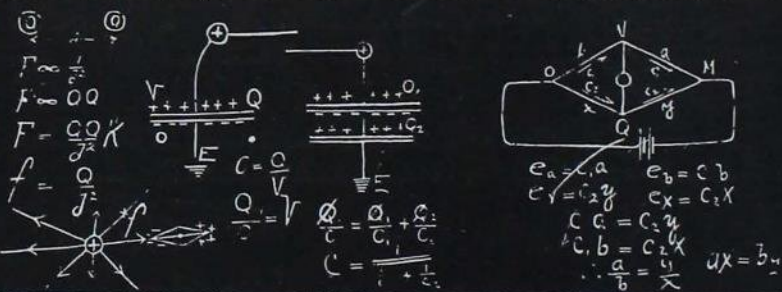 F ∝ 1/d²
F ∝ QQ
F = QQ/d² K
f = Q/d²
f
V + + + + + + + Q
O
E
C = Q/V
Q/C = V
+ + + + + + + Q₁
+ + + + + + + C₂
E
Q/C = Q₁/C₁ + Q₂/C₂
V
b a
O M
x y
Q
eₐ = c₁a e_b = c₁b
e_y = c₂y eₓ = c₂x
c₁a = c₂y
c₁b = c₂x
∴ a/b = y/x ax = by